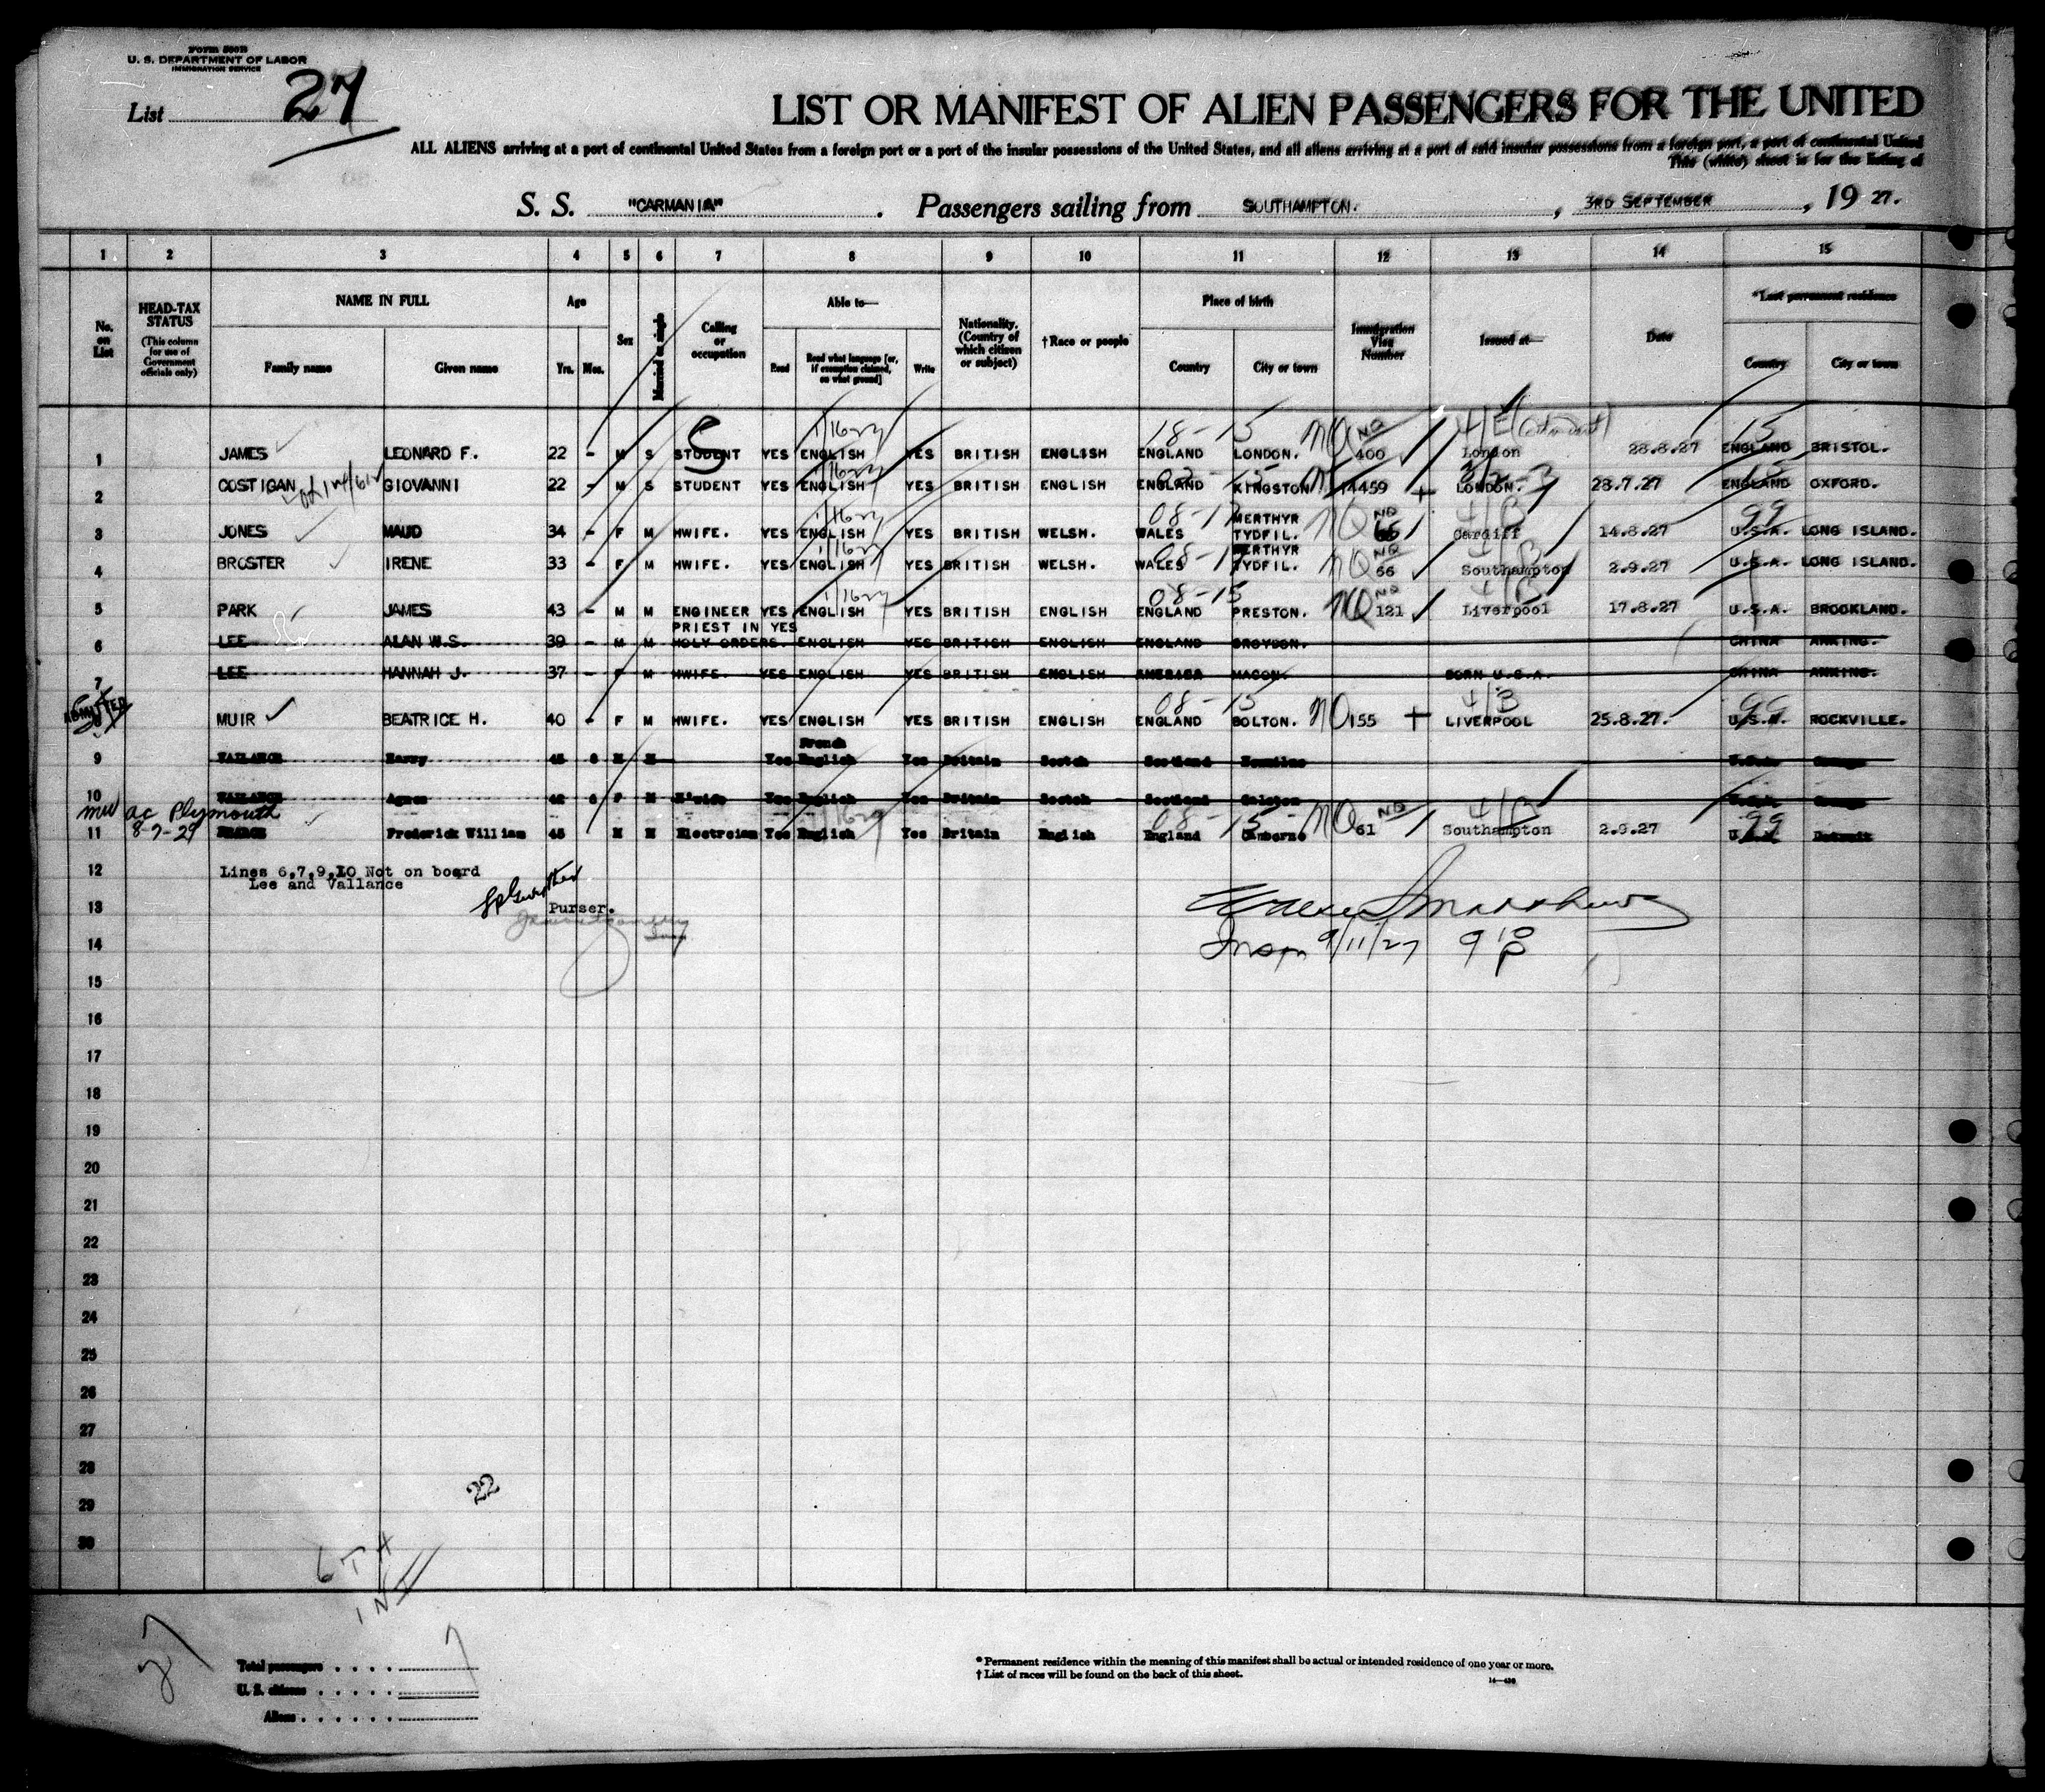 Form 500B
U. S. DEPARTMENT OF LABOR
IMMIGRATION SERVICE
List 27
LIST OR MANIFEST OF ALIEN PASSENGERS FOR THE UNITED
ALL ALIENS arriving at a port of continental United States from a foreign port or a port of the insular possessions of the United States, and all aliens arriving at a port of said insular possessions from a foreign port, a port of continental United
This (white) sheet is for the listing of
S. S. "CARMANIA". Passengers sailing from SOUTHAMPTON. , 3RD SEPTEMBER , 19 27.
1 2 3 4 5 6 7 8 9 10 11 12 13 14 15
No. on List
HEAD-TAX STATUS (This column for use of Government officials only)
NAME IN FULL Family name Given name
Age Yrs. Mos.
Sex
Married or single
Calling or occupation
Able to— Read Read what language [or, if exemption claimed, on what ground] Write
Nationality. (Country of which citizen or subject)
†Race or people
Place of birth Country City or town
Immigration Visa Number
Issued at—
Date
*Last permanent residence Country City or town
1 JAMES LEONARD F. 22 - M S STUDENT YES ENGLISH YES BRITISH ENGLISH ENGLAND LONDON. NQ 400 London 23.8.27 ENGLAND BRISTOL.
2 COSTIGAN GIOVANNI 22 - M S STUDENT YES ENGLISH YES BRITISH ENGLISH ENGLAND KINGSTON 14459 LONDON. 23.7.27 ENGLAND OXFORD.
3 JONES MAUD 34 - F M HWIFE. YES ENGLISH YES BRITISH WELSH. WALES MERTHYR TYDFIL. NQ Cardiff 14.8.27 U.S.A. LONG ISLAND.
4 BROSTER IRENE 33 - F M HWIFE. YES ENGLISH YES BRITISH WELSH. WALES MERTHYR TYDFIL. NQ 56 Southampton 2.9.27 U.S.A. LONG ISLAND.
5 PARK JAMES 43 - M M ENGINEER YES ENGLISH YES BRITISH ENGLISH ENGLAND PRESTON. NQ 121 Liverpool 17.8.27 U.S.A. BROOKLAND.
6 LEE ALAN W.S. 39 - M M PRIEST IN HOLY ORDERS. YES ENGLISH YES BRITISH ENGLISH ENGLAND CROYDON. CHINA ANKING.
7 LEE HANNAH J. 37 - F M HWIFE. YES ENGLISH YES BRITISH ENGLISH AMERICA MACON. BORN U.S.A. CHINA ANKING.
ADMITTED
8 MUIR BEATRICE H. 40 - F M HWIFE. YES ENGLISH YES BRITISH ENGLISH ENGLAND BOLTON. NQ 155 LIVERPOOL 25.8.27. U.S.A. ROCKVILLE.
9 VALLANCE Harry 45 M M Yes French English Yes Britain Scotch Scotland U.S.A.
10 VALLANCE Agnes 42 F M H'wife Yes English Yes Britain Scotch Scotland Galston U.S.A.
ac Plymouth
8-7-29
11 Frederick William 45 M M Yes English Yes Britain English England NQ 61 Southampton 2.9.27 Detroit
12 Lines 6,7,9,10 Not on board
Lee and Vallance
13 Purser.
14 Insp 9/11/27 9 10 P
15
16
17
18
19
20
21
22
23
24
25
26
27
28
29
30
22
6 TH
INT
27
Total passengers . . . . 7
U. S. citizens . . . . .
Aliens . . . . . .
* Permanent residence within the meaning of this manifest shall be actual or intended residence of one year or more.
† List of races will be found on the back of this sheet.